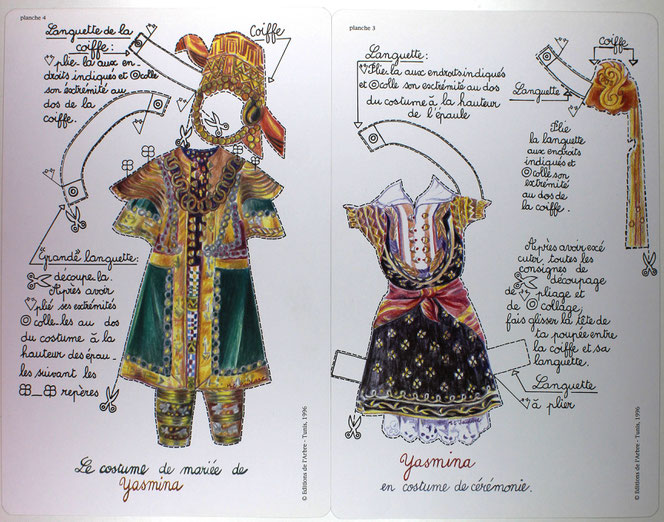 planche 4
Languette de la
coiffe :
plie-la aux en-
droits indiqués et colle
son extrémité au
dos de la
coiffe.
Coiffe
"Grande" languette :
découpe-la.
Après avoir
plié ses extrémités
colle-les au dos
du costume à la
hauteur des épau-
les suivant les
repères
Le costume de mariée de
Yasmina
© Editions de l'Arbre - Tunis, 1996
planche 3
Languette :
Plie-la aux endroits indiqués
et colle son extrémité au dos
du costume à la hauteur
de l'épaule
Coiffe
Languette
Plie
la languette
aux endroits
indiqués et
colle son
extrémité
au dos de
la coiffe.
Après avoir exé
cuter toutes les
consignes de
découpage
de pliage et
de collage,
fais glisser la tête de
ta poupée entre
la coiffe et sa
languette.
Languette
à plier
Yasmina
en costume de cérémonie.
© Editions de l'Arbre - Tunis, 1996